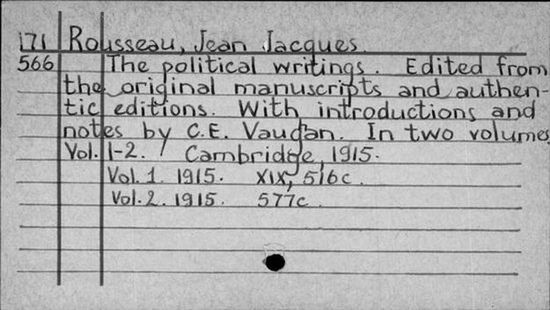 171 Rousseau, Jean Jacques.
566 The political writings. Edited from
the original manuscripts and authen-
tic editions. With introductions and
notes by C.E. Vaudan. In two volumes
Vol. 1-2. Cambridge, 1915.
Vol. 1. 1915. XIX, 516c.
Vol. 2. 1915. 577c